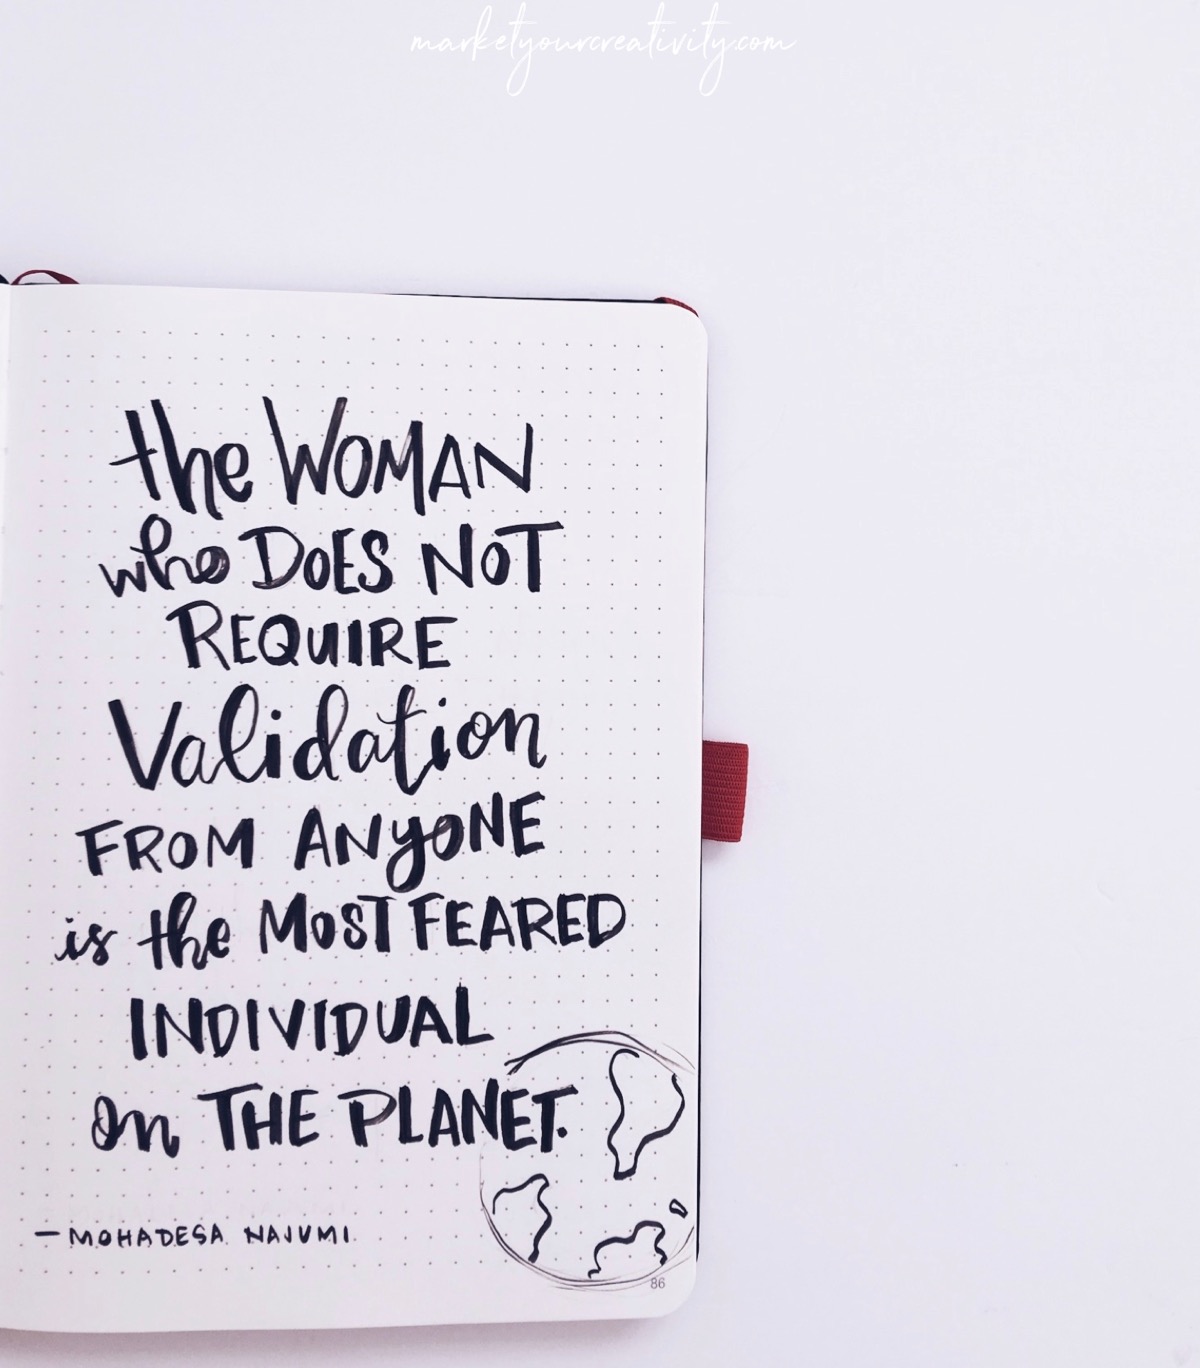 marketyourcreativity.com
the WOMAN
who DOES NOT
REQUIRE
Validation
FROM ANYONE
is the MOST FEARED
INDIVIDUAL
on THE PLANET.
— MOHADESA NAJUMI
86